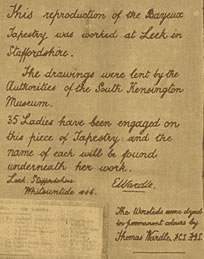 This reproduction of the Bayeux
Tapestry was worked at Leek in
Staffordshire.
The drawings were lent by the
Authorities of the South Kensington
Museum.
35 Ladies have been engaged on
this piece of Tapestry and the
name of each will be found
underneath her work.
Leek, Staffordshire
Whitsuntide
E. Wardle.
The Worsteds were dyed
in permanent colours by
Thomas Wardle,